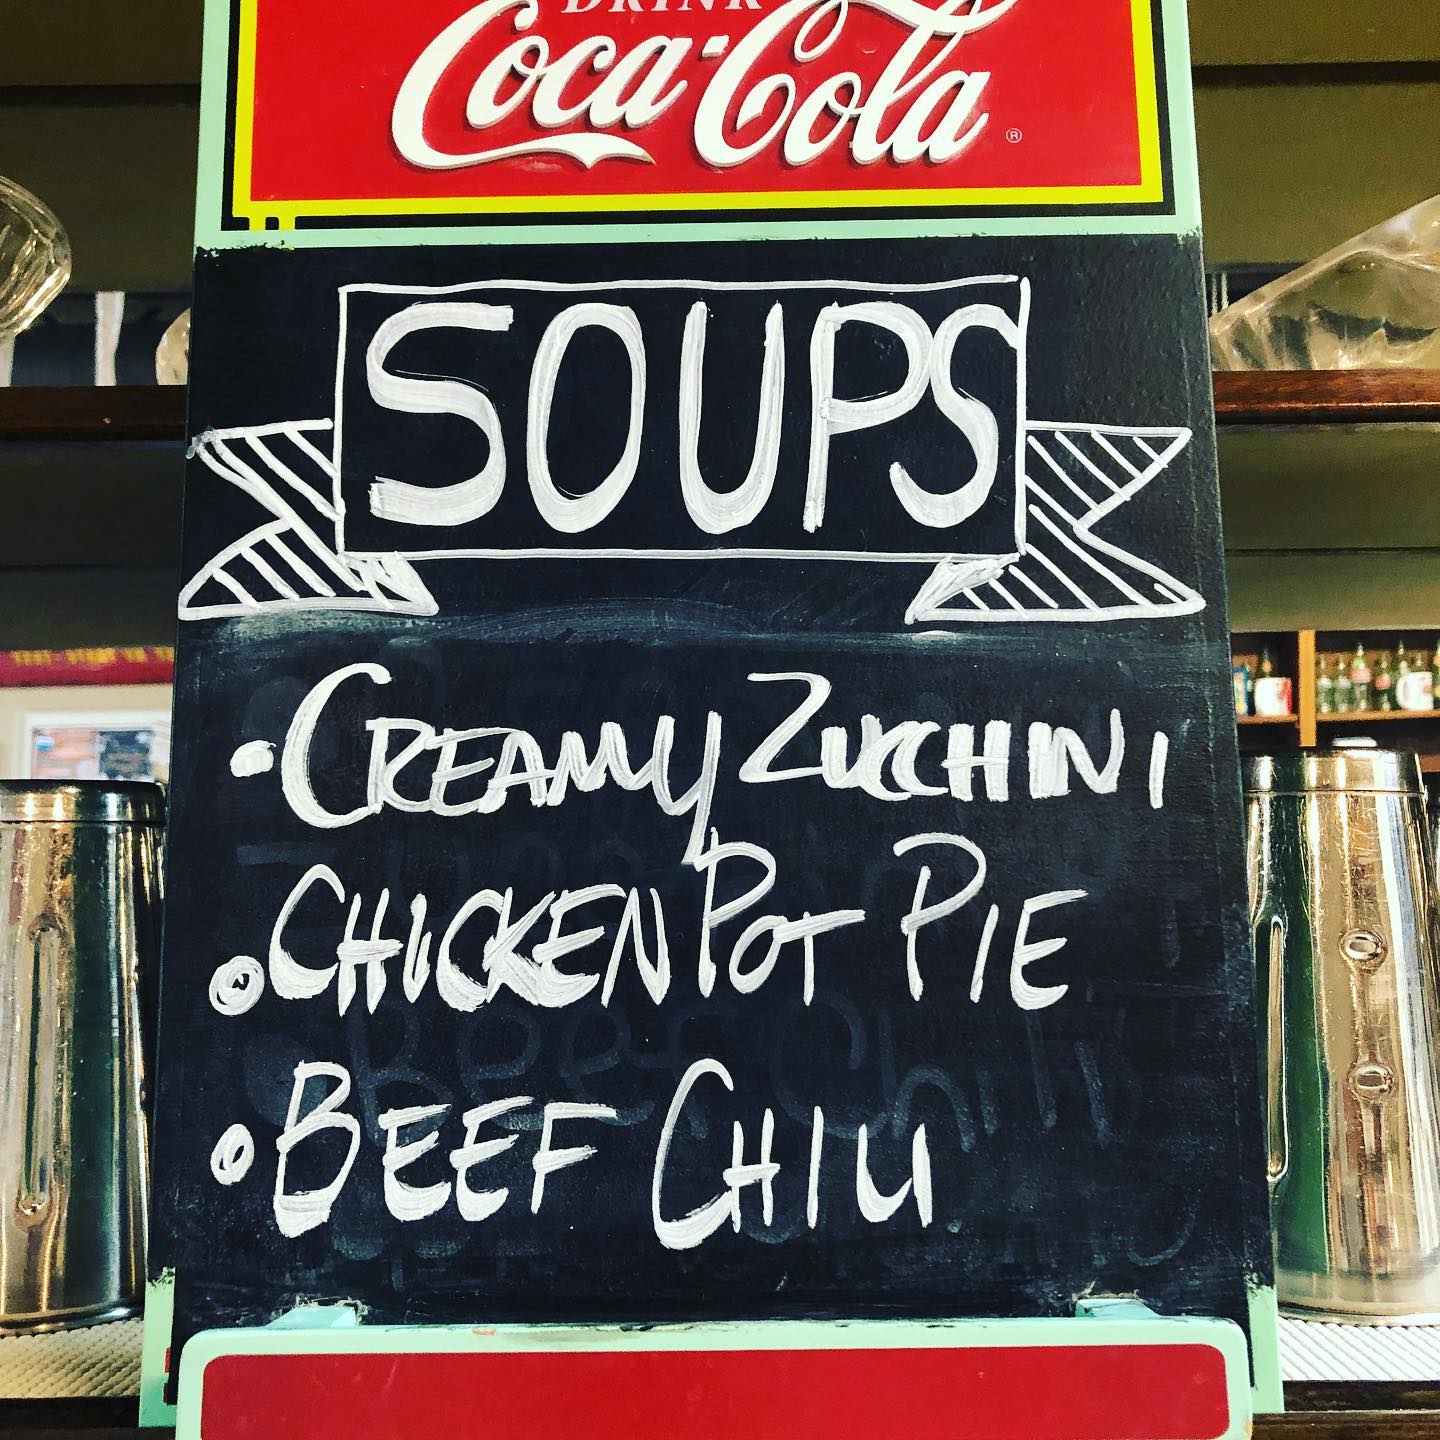 DRINK
Coca-Cola ®
SOUPS
• CREAMY ZUCCHINI
• CHICKEN POT PIE
• BEEF CHILI
Beef Chili